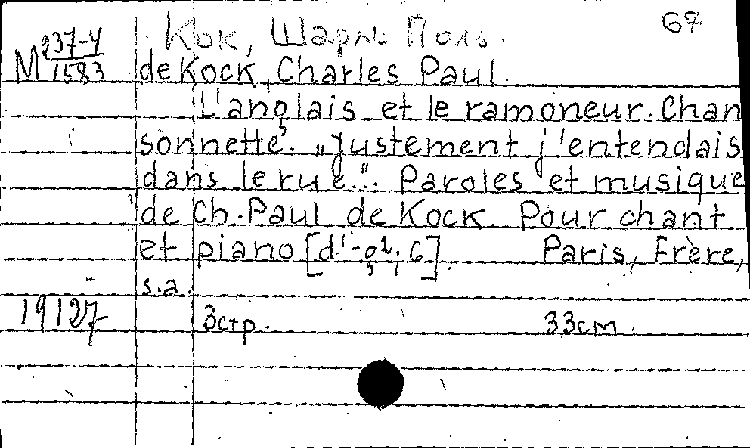 67
M 237-4/1583
Кок, Шарль Поль.
de Kock, Charles Paul.
L'anglais et le ramoneur. Chan
sonnette. „Justement j'entendais
dans le rue". Paroles et musique
de Ch. Paul de Kock Pour chant
et piano [d'-g²; G]. Paris, Frère,
s.a.
19127
3стр. 33см.